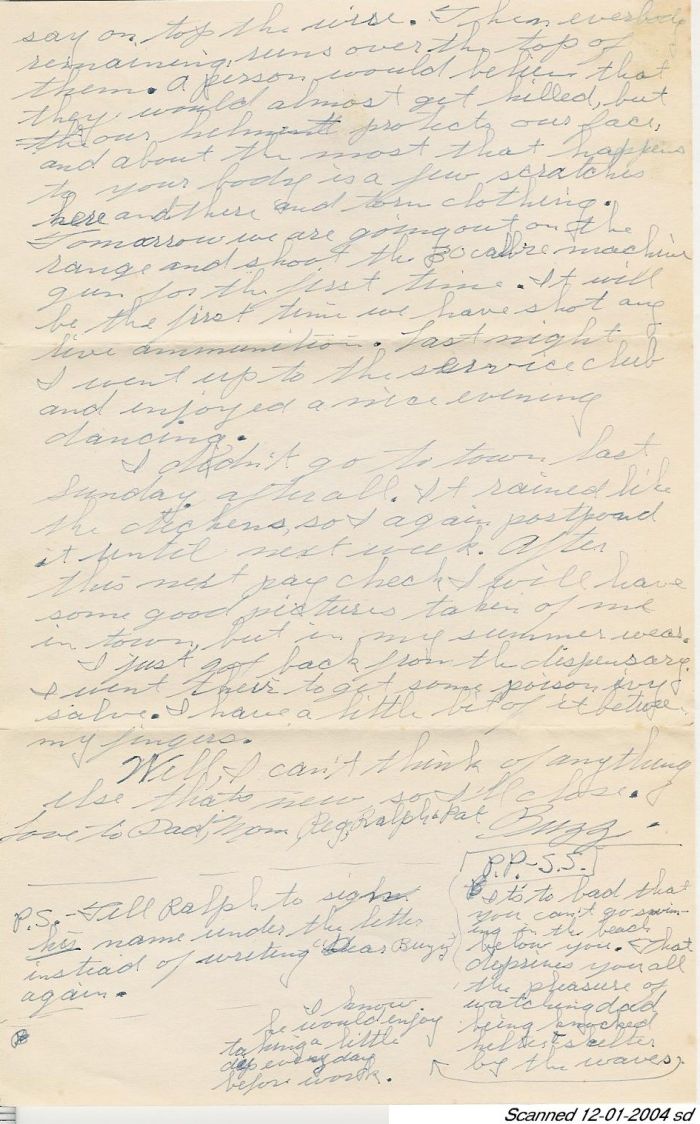 say on top the wire. Then everbody
remaining runs over the top of
them. A person would believe that
they would almost get killed, but
our helment protects our face,
and about the most that happens
to your body is a few scratches
here and there and torn clothing.
Tomorrow we are going out on the
range and shoot the 30 calibre machine
gun for the first time. It will
be the first time we have shot any
live ammunition. Last night
I went up to the service club
and enjoyed a nice evening
dancing.
I didn't go to town last
Sunday after all. It rained like
the chickens, so I again postpond
it until next week. After
this next pay check I will have
some good pictures taken of me
in town, but in my summer wear.
I just got back from the dispensary.
I went their to get some poison ivy
salve. I have a little bit of it between
my fingers.
Well, I can't think of anything
else thats new so I'll close.
Love to Dad, Mom, Reg, Ralph & Pal
Buzz.
P.S.-Tell Ralph to sign
his name under the letter
instead of writing "Dear Buzz"
again.
P.P.-S.S.
It's to bad that
you can't go swim-
ing on the beach
below you. That
deprives you all
the pleasure of
watching dad
being knocked
helter skelter
by the waves.
I know
he would enjoy
taking a little
dip everyday
before work.
Scanned 12-01-2004 sd